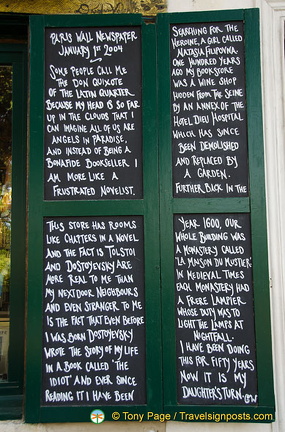 PARIS WALL NEWSPAPER
JANUARY 1ST 2004
SOME PEOPLE CALL ME
THE DON QUIXOTE
OF THE LATIN QUARTER
BECAUSE MY HEAD IS SO FAR
UP IN THE CLOUDS THAT I
CAN IMAGINE ALL OF US ARE
ANGELS IN PARADISE.
AND INSTEAD OF BEING A
BONAFIDE BOOKSELLER I
AM MORE LIKE A
FRUSTRATED NOVELIST.
THIS STORE HAS ROOMS
LIKE CHAPTERS IN A NOVEL
AND THE FACT IS TOLSTOI
AND DOSTOYEVSKY ARE
MORE REAL TO ME THAN
MY NEXT DOOR NEIGHBOURS
AND EVEN STRANGER TO ME
IS THE FACT THAT EVEN BEFORE
I WAS BORN DOSTOYEVSKY
WROTE THE STORY OF MY LIFE
IN A BOOK CALLED 'THE
IDIOT' AND EVER SINCE
READING IT I HAVE BEEN
SEARCHING FOR THE
HEROINE, A GIRL CALLED
NATASIA FILIPOVNA.
ONE HUNDRED YEARS
AGO MY BOOKSTORE
WAS A WINE SHOP
HIDDEN FROM THE SEINE
BY AN ANNEX OF THE
HOTEL DIEU HOSPITAL
WHICH HAS SINCE
BEEN DEMOLISHED
AND REPLACED BY
A GARDEN.
FURTHER BACK IN THE
YEAR 1600, OUR
WHOLE BUILDING WAS
A MONASTERY CALLED
'LA MAISON DU MUSTIER'
IN MEDIEVAL TIMES
EACH MONASTERY HAD
A FRERE LAMPIER
WHOSE DUTY WAS TO
LIGHT THE LAMPS AT
NIGHTFALL.
I HAVE BEEN DOING
THIS FOR FIFTY YEARS
NOW IT IS MY
DAUGHTER'S TURN. GW
© Tony Page / Travelsignposts.com